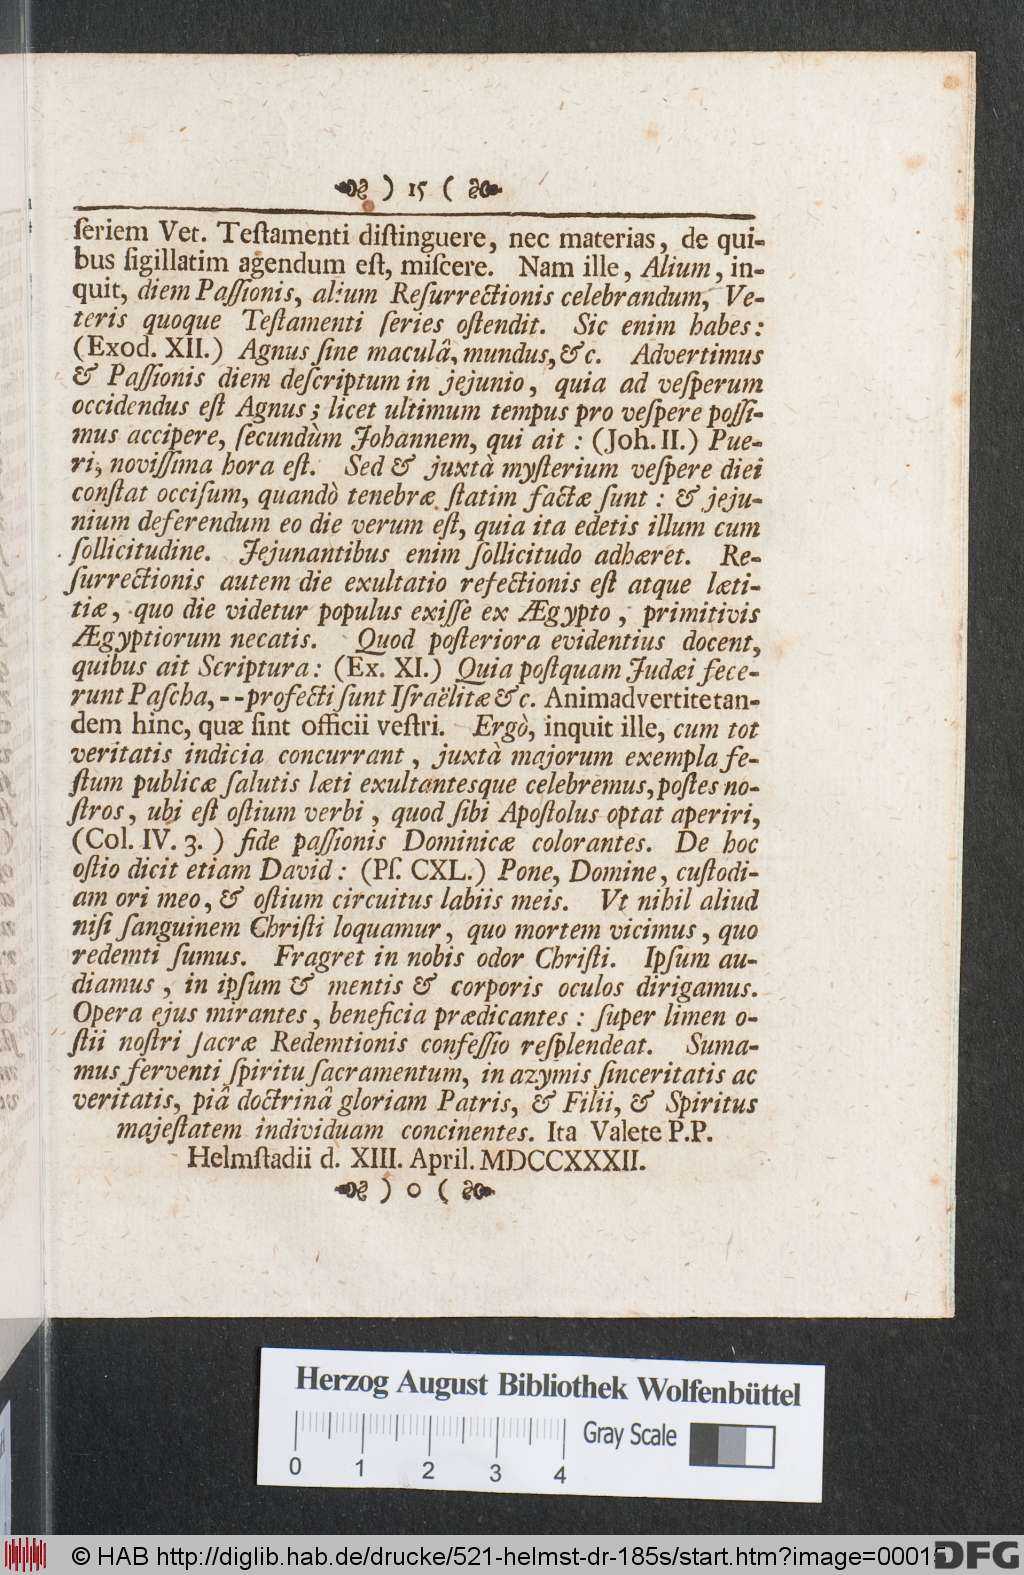 ) 15 (
ſeriem Vet. Teſtamenti diſtinguere, nec materias, de qui-
bus ſigillatim agendum eſt, miſcere. Nam ille, Alium, in-
quit, diem Paſſionis, alium Reſurrectionis celebrandum, Ve-
teris quoque Teſtamenti ſeries oſtendit. Sic enim habes:
(Exod. XII.) Agnus ſine maculâ, mundus, &c. Advertimus
& Paſſionis diem deſcriptum in jejunio, quia ad veſperum
occidendus eſt Agnus; licet ultimum tempus pro veſpere poſſi-
mus accipere, ſecundùm Johannem, qui ait: (Joh. II.) Pue-
ri, noviſſima hora eſt. Sed & juxtà myſterium veſpere diei
conſtat occiſum, quandò tenebræ ſtatim factæ ſunt: & jeju-
nium deferendum eo die verum eſt, quia ita edetis illum cum
ſollicitudine. Jejunantibus enim ſollicitudo adhæret. Re-
ſurrectionis autem die exultatio refectionis eſt atque læti-
tiæ, quo die videtur populus exiſſe ex Ægypto, primitivis
Ægyptiorum necatis. Quod poſteriora evidentius docent,
quibus ait Scriptura: (Ex. XI.) Quia poſtquam Judæi fece-
runt Paſcha, -- profecti ſunt Iſraëlitæ &c. Animadvertite tan-
dem hinc, quæ ſint officii veſtri. Ergò, inquit ille, cum tot
veritatis indicia concurrant, juxtà majorum exempla fe-
ſtum publicæ ſalutis læti exultantesque celebremus, poſtes no-
ſtros, ubi eſt oſtium verbi, quod ſibi Apoſtolus optat aperiri,
(Col. IV. 3.) fide paſſionis Dominicæ colorantes. De hoc
oſtio dicit etiam David: (Pſ. CXL.) Pone, Domine, cuſtodi-
am ori meo, & oſtium circuitus labiis meis. Vt nihil aliud
niſi ſanguinem Chriſti loquamur, quo mortem vicimus, quo
redemti ſumus. Fragret in nobis odor Chriſti. Ipſum au-
diamus, in ipſum & mentis & corporis oculos dirigamus.
Opera ejus mirantes, beneficia prædicantes: ſuper limen o-
ſtii noſtri ſacræ Redemtionis confeſſio reſplendeat. Suma-
mus ferventi ſpiritu ſacramentum, in azymis ſinceritatis ac
veritatis, piâ doctrinâ gloriam Patris, & Filii, & Spiritus
majeſtatem individuam concinentes. Ita Valete P.P.
Helmſtadii d. XIII. April. MDCCXXXII.
) o (
Herzog August Bibliothek Wolfenbüttel
Gray Scale
0 1 2 3 4
© HAB http://diglib.hab.de/drucke/521-helmst-dr-185s/start.htm?image=00015
DFG